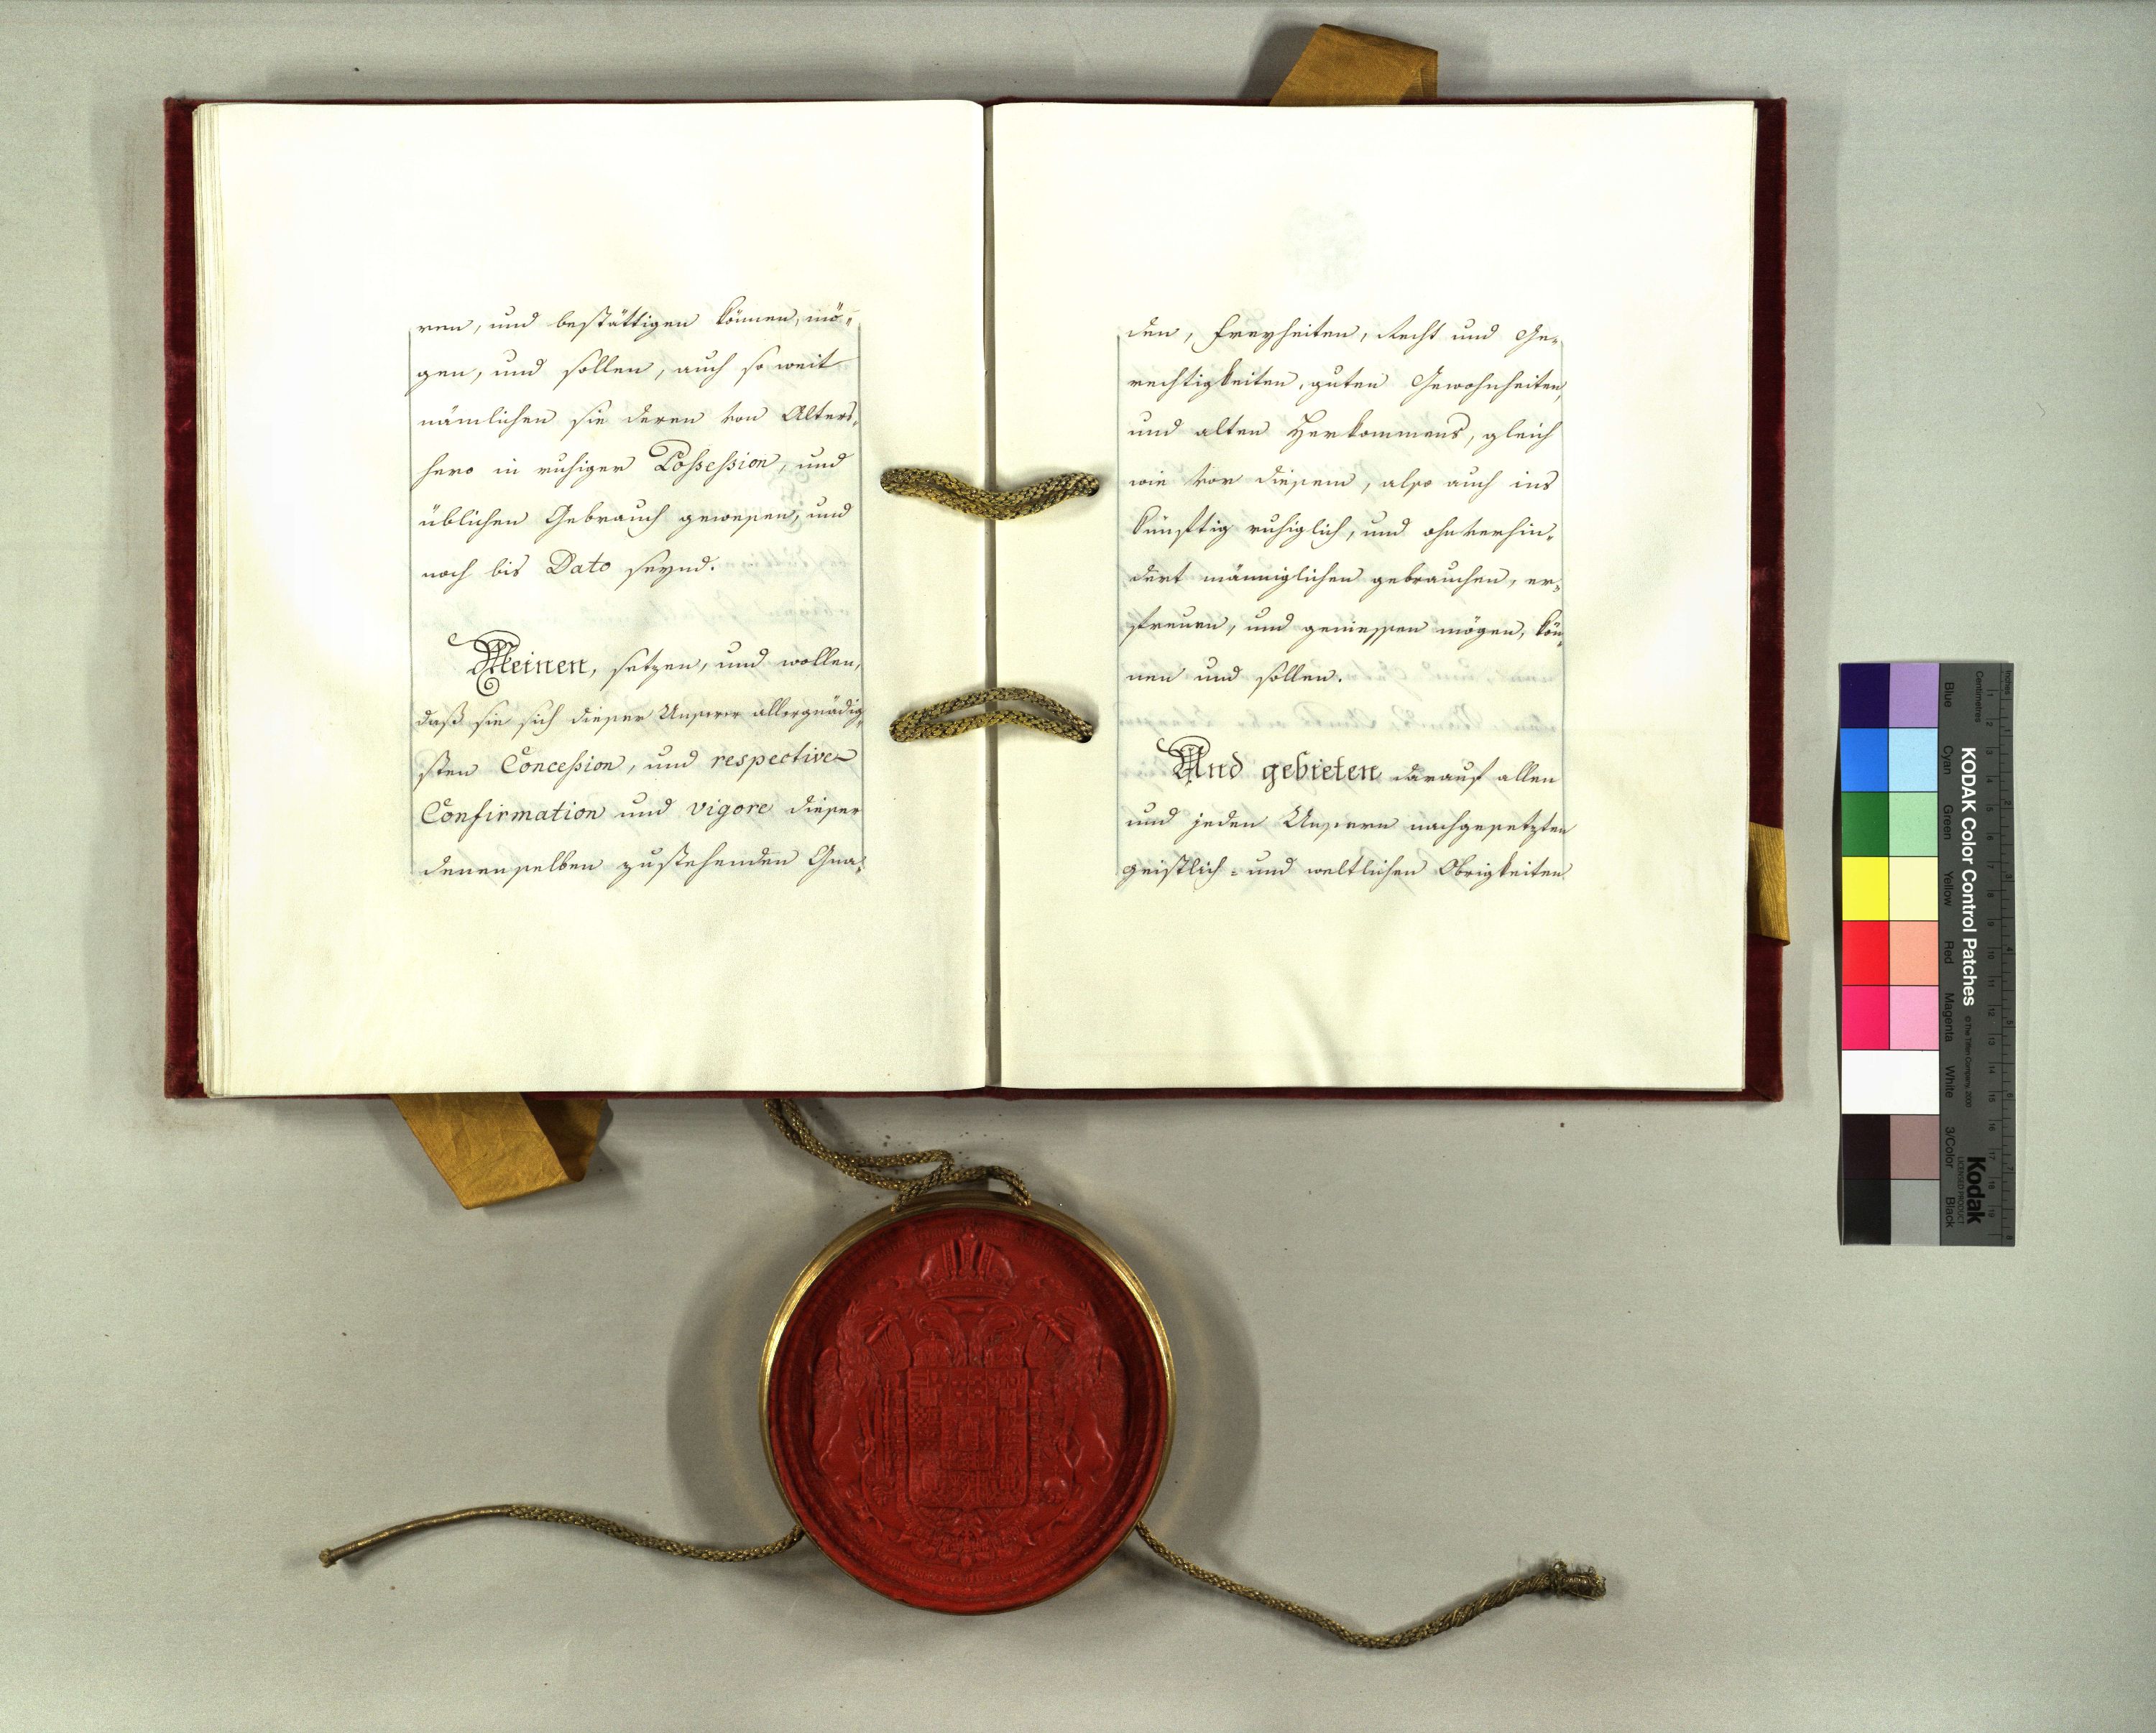 ren, und bestättigen können, mö-
gen, und sollen, auch so weit
nämlichen sie deren von Alters-
hero in ruhiger Possession, und
üblichen Gebrauch gewesen, und
noch bis Dato seynd.
Meinen, setzen, und wollen,
daß sie sich dieser Unserer allergnädig-
sten Concession, und respective
Confirmation und vigore dieser
denenselben zustehenden Gna-
den, Freyheiten, Recht und Ge-
rechtigkeiten, guten Gewohnheiten,
und alten Herkommens, gleich
wie vor diesem, also auch ins
künftig ruhiglich, und ohnverhin-
dert männiglichen gebrauchen, er-
freuen, und geniessen mögen, kön-
nen und sollen.
Und gebieten darauf allen
und jeden Unsern nachgesetzten
geistlich- und weltlichen Obrigkeiten
KODAK Color Control Patches
© The Tiffen Company, 2000
Kodak
LICENSED PRODUCT
Inches
Centimetres
Blue Cyan Green Yellow Red Magenta White 3/Color Black